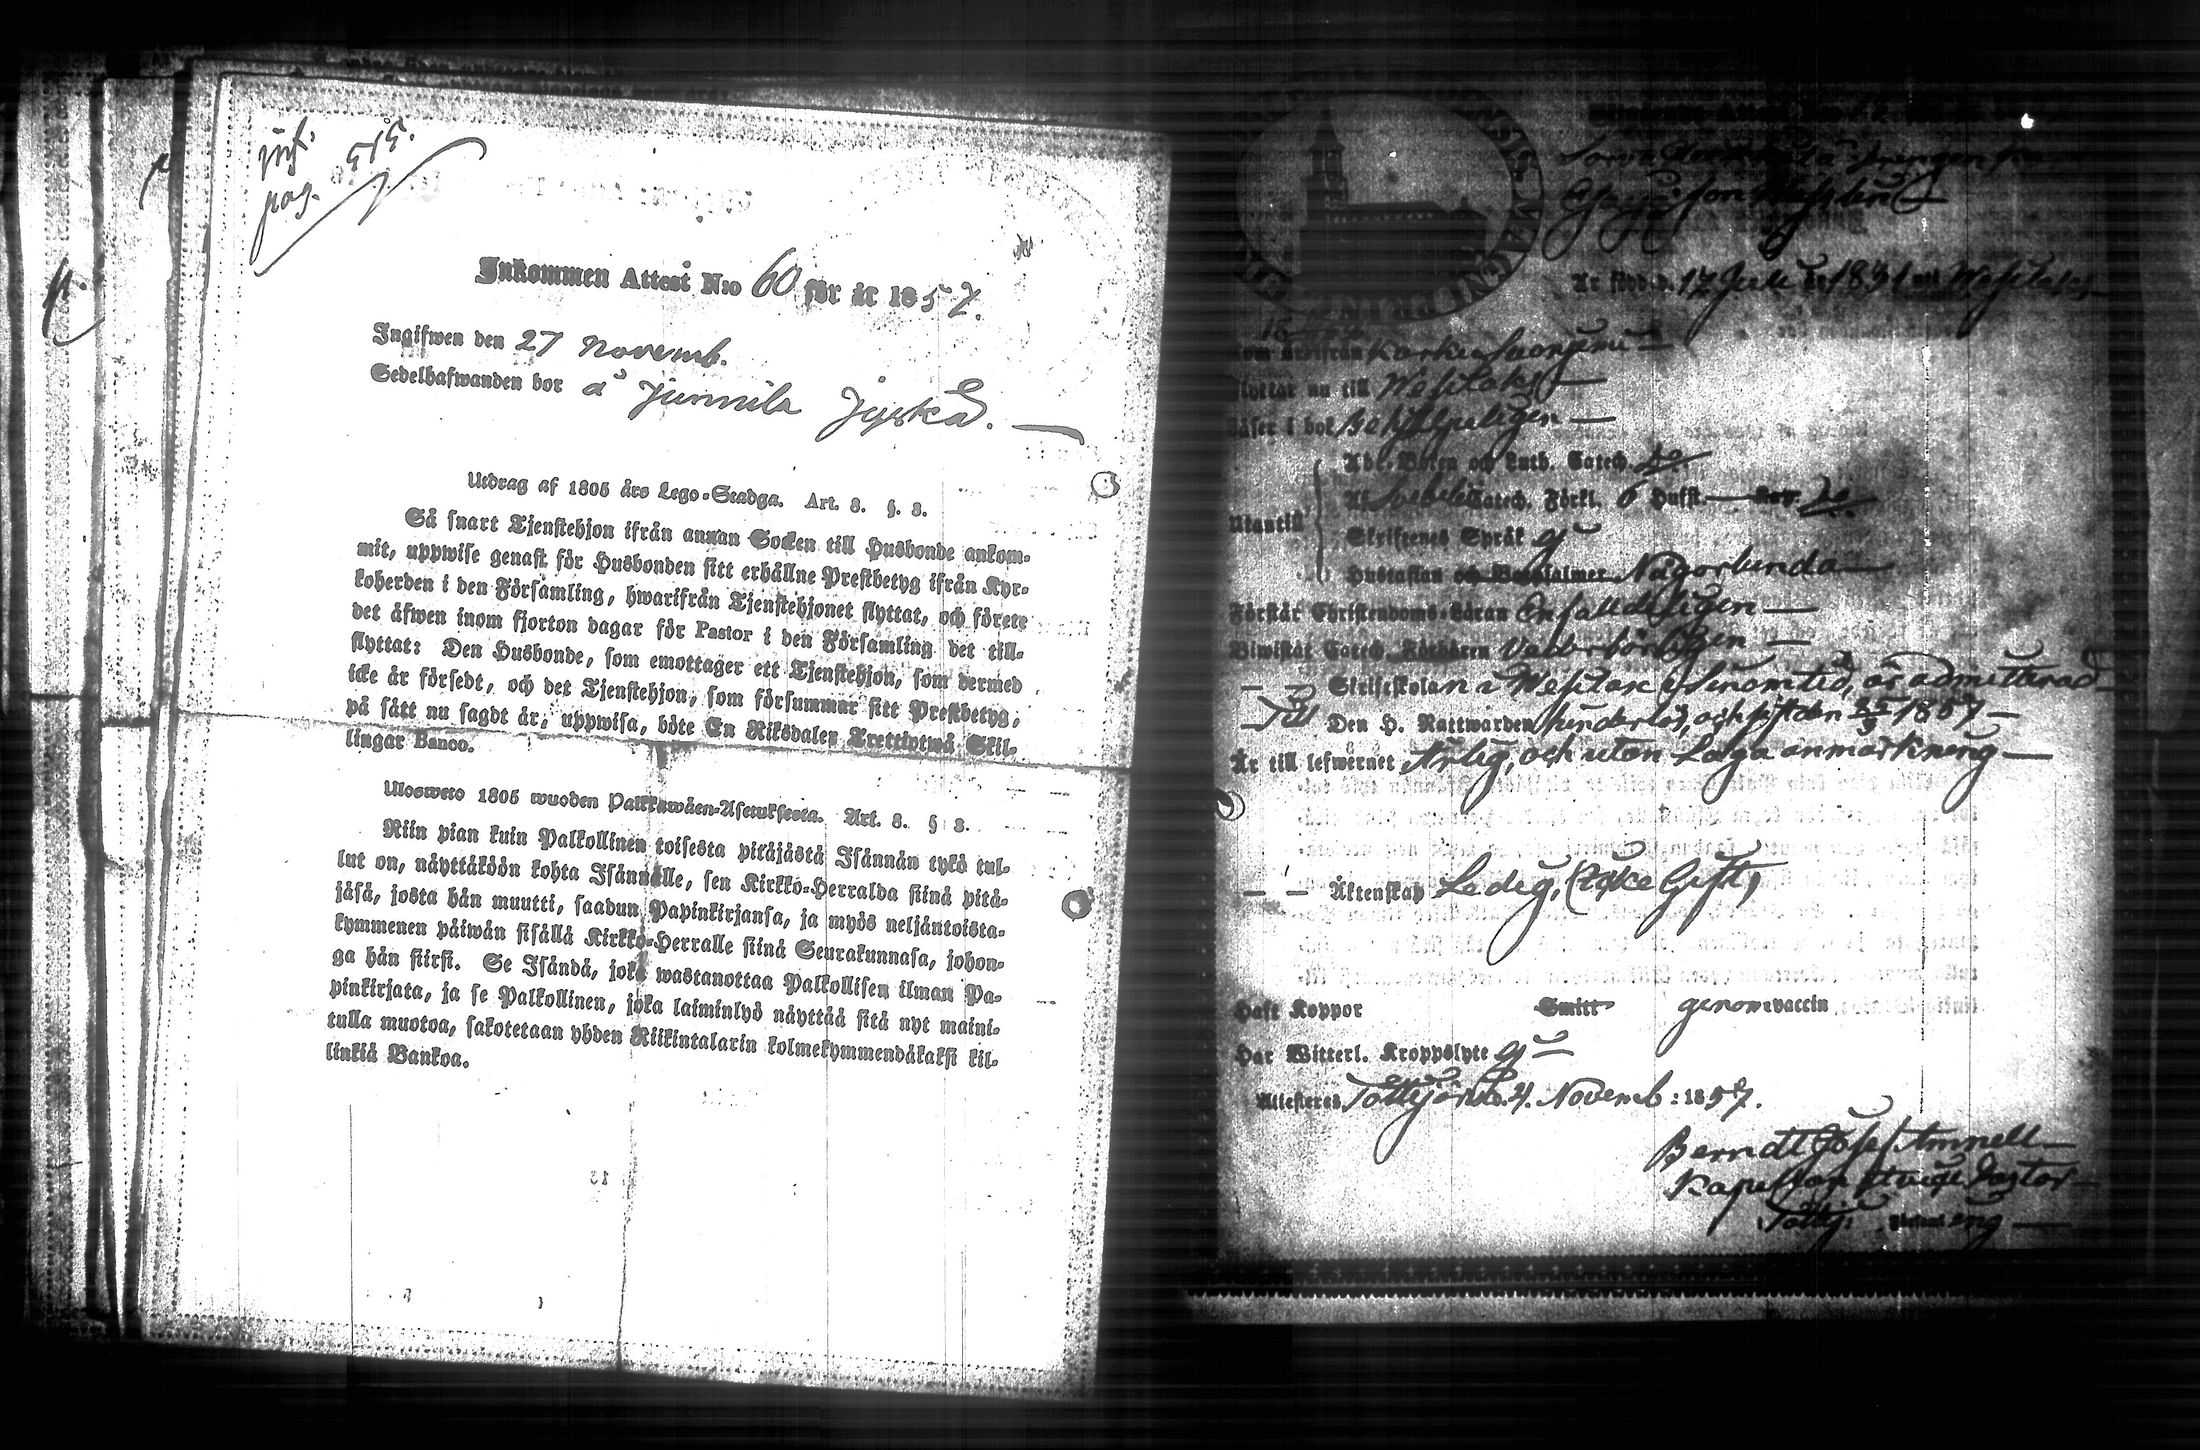 pag. 515.
Inkommen Attest N:o 60 för år 1857.
Ingifwen den 27 Novemb.
Sedelhafwanden bor å Junnila Jyskä. —
Utdrag af 1805 års Lego-Stadga. Art. 8. §. 3.
Så snart Tjenstehjon ifrån annan Socken till Husbonde ankom-
mit, uppwise genast för Husbonden sitt erhållne Prestbetyg ifrån Kyr-
koherden i den Församling, hwarifrån Tjenstehjonet flyttat, och förete
det äfwen inom fjorton dagar för Pastor i den Församling det till-
flyttat: Den Husbonde, som emottager ett Tjenstehjon, som dermed
icke är försedt, och det Tjenstehjon, som försummar sitt Prestbetyg,
på sätt nu sagdt är, uppwisa, böte En Riksdaler Trettiotwå Skil-
lingar Banco.
Ulosweto 1805 wuoden Palkkawäen-Asetuksesta. Art. 8. § 3.
Niin pian kuin Palkollinen toisesta pitäjästä Isännän tykö tul-
lut on, näyttäköön kohta Isännälle, sen Kirkko-Herralda siinä pitä-
jäsä, josta hän muutti, saadun Papinkirjansa, ja myös neljäntoista-
kymmenen päiwän sisällä Kirkko-Herralle siinä Seurakunnasa, johon-
ga hän siirsi. Se Isändä, joka wastanottaa Palkollisen ilman Pa-
pinkirjata, ja se Palkollinen, joka laiminlyö näyttää sitä nyt maini-
tulla muotoa, sakotetaan yhden Riikintalarin kolmekymmendäkaksi kil-
linkiä Bankoa.
Är född d. 17 Juli år 1831 uti Wesilaks
kom hit ifrån
flyttar nu till Wesilaks —
Läser i bok behjelpeligen —
Utantill
Abc-Boken och Luth. Catech.
Af Svebelii Catech. Förkl. 6 Hufst. —
Skriftenes Språk ej
Hustaflan och Bothsalmer Någorlunda —
Förstår Christendoms-Läran Enfalldeligen —
Biwistat Catech. Förhören Vederbörligen —
— „ — Skriftskolan i Wesilaks sinom tid, är admitterad
— Till Den H. Nattwarden hinderlös, och sist den 25/9 1857 —
Är till lefwernet Ärlig, och utan Laga anmärkning —
— „ — Äktenskap Ledig, (Icke Gift)
Haft Koppor Smitt genom vaccin
Har Witterl. Kroppslyte ej —
Attesteras Tottijärvi d. 4. Novemb: 1857.